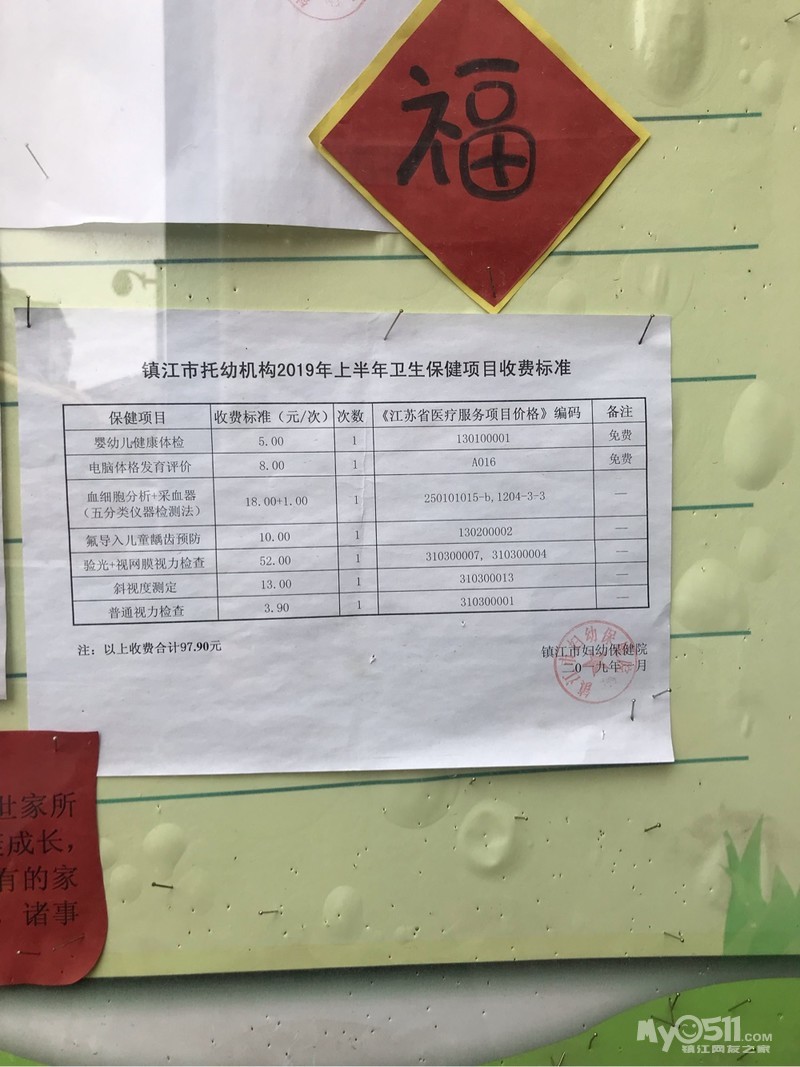 福
镇江市托幼机构2019年上半年卫生保健项目收费标准
保健项目 收费标准（元/次） 次数 《江苏省医疗服务项目价格》编码 备注
婴幼儿健康体检 5.00 1 130100001 免费
电脑体格发育评价 8.00 1 A016 免费
血细胞分析+采血器
（五分类仪器检测法） 18.00+1.00 1 250101015-b,1204-3-3 —
氟导入儿童龋齿预防 10.00 1 130200002 —
验光+视网膜视力检查 52.00 1 310300007, 310300004 —
斜视度测定 13.00 1 310300013 —
普通视力检查 3.90 1 310300001 —
注：以上收费合计97.90元
镇江市妇幼保健院
九年 月
家所
成长，
有的家
诸事
My0511.COM
镇江网友之家